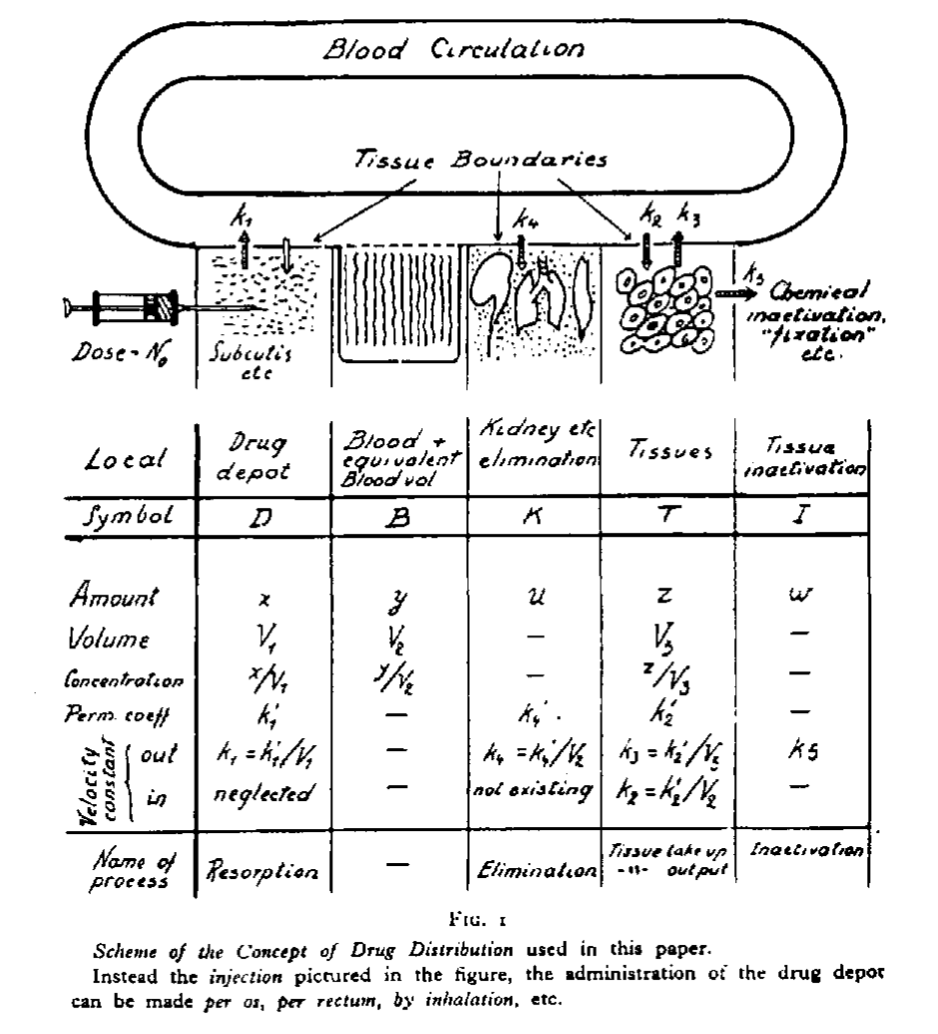 Blood Circulation
Tissue Boundaries
k₁ k₄ k₂ k₃
k₅ Chemical
inactivation,
"fixation"
etc.
Dose = N₀ Subcutis
etc
Local Drug depot Blood + equivalent Blood vol Kidney etc elimination Tissues Tissue inactivation
Symbol D B K T I
Amount x y u z w
Volume V₁ V₂ — V₃ —
Concentration x/V₁ y/V₂ — z/V₃ —
Perm. coeff k₁' — k₄'. k₂' —
Velocity constant
out k₁ = k₁'/V₁ — k₄ = k₄'/V₂ k₃ = k₂'/V₃ k5
in neglected — not existing k₂ = k₂'/V₂ —
Name of process Resorption — Elimination Tissue take up -"- output Inactivation
FIG. 1
Scheme of the Concept of Drug Distribution used in this paper.
Instead the injection pictured in the figure, the administration of the drug depot
can be made per os, per rectum, by inhalation, etc.